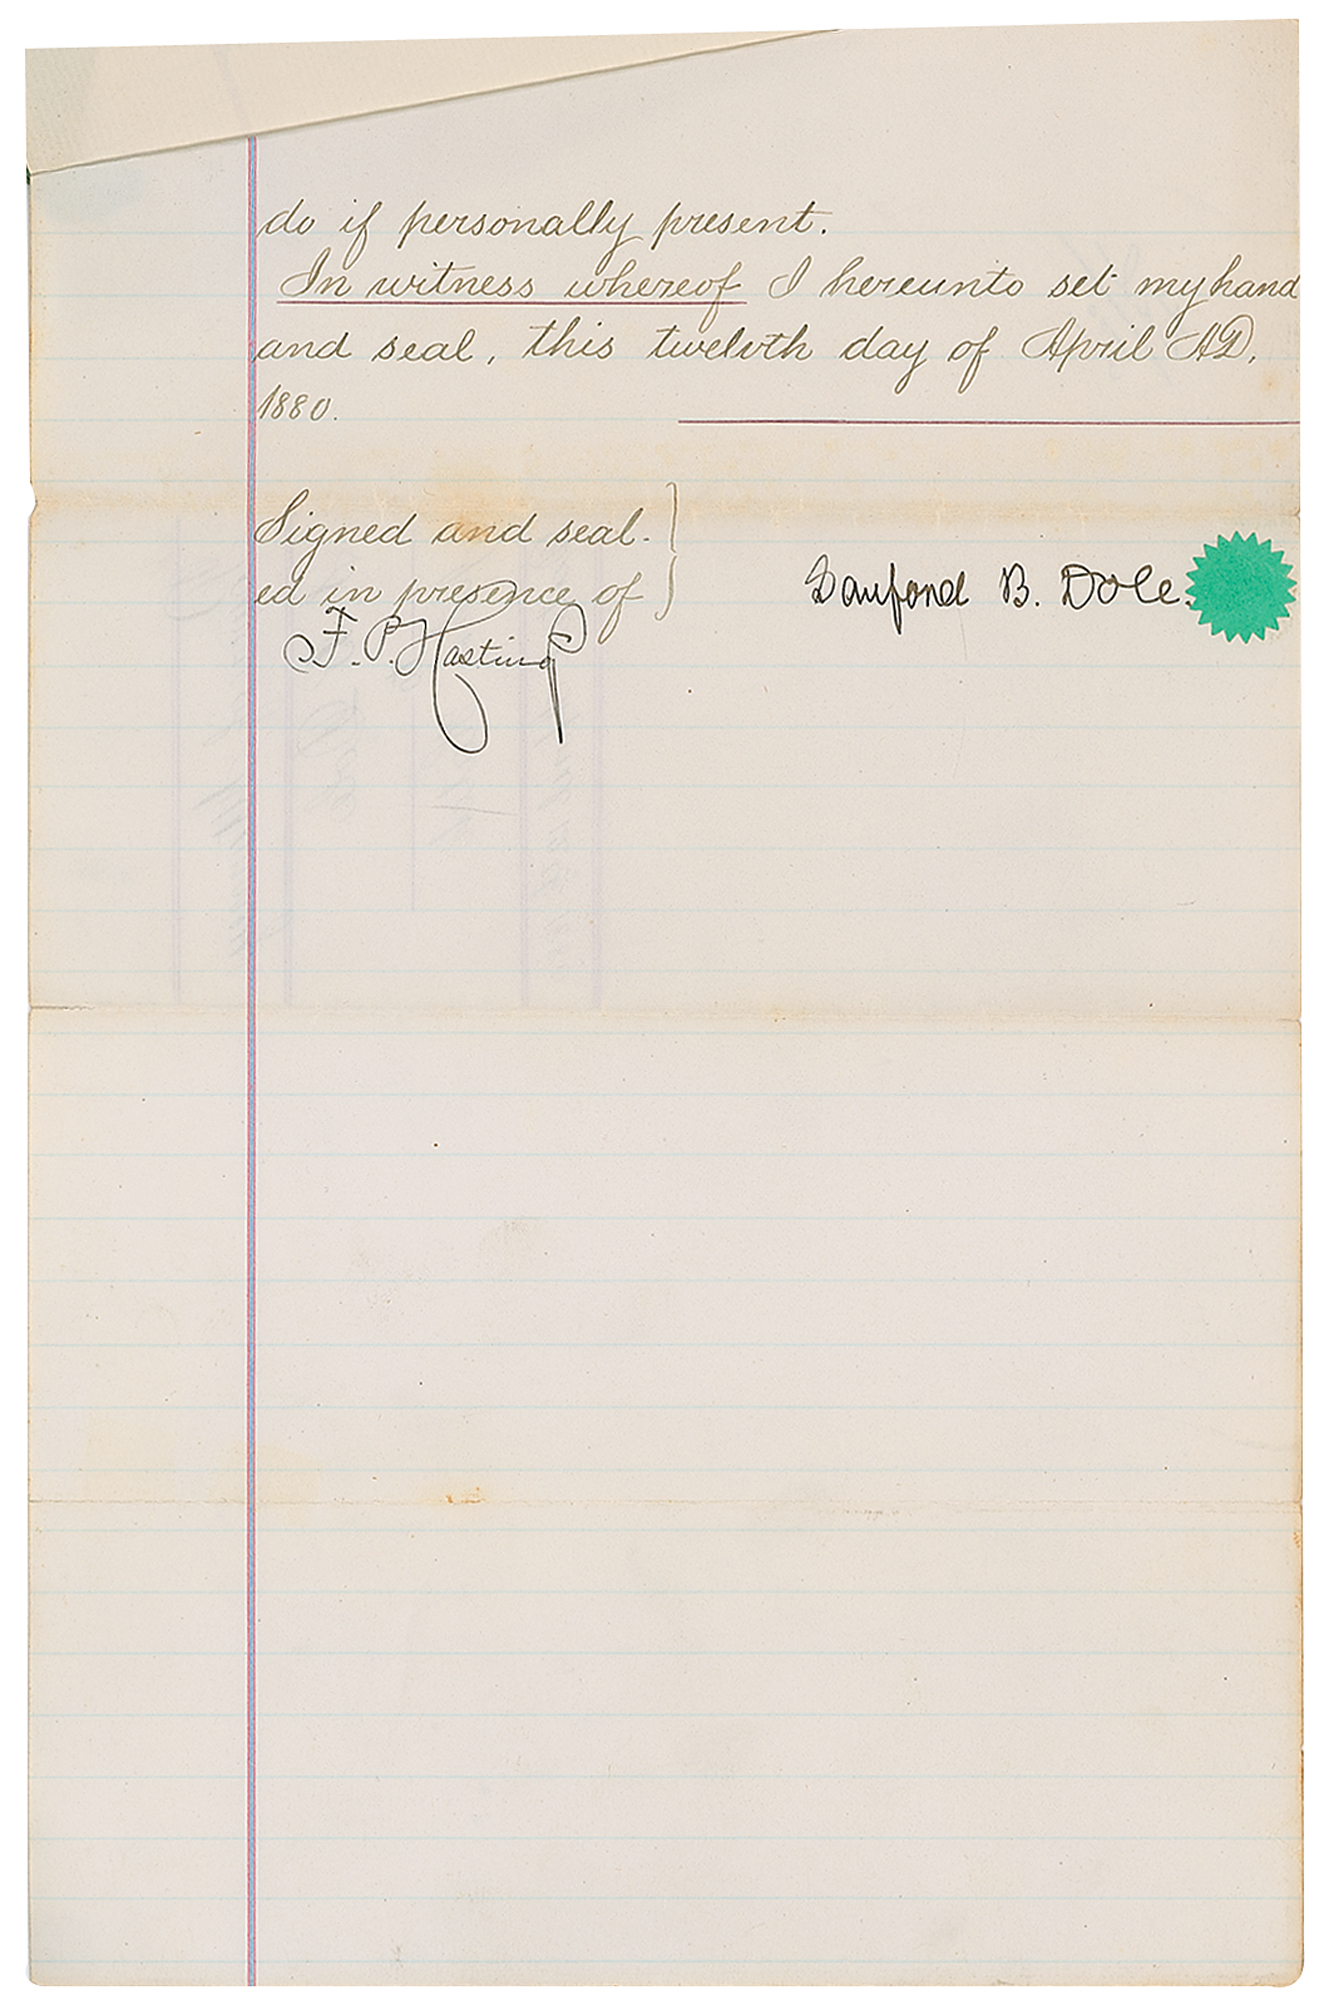 do if personally present.
In witness whereof I hereunto set my hand
and seal, this twelvth day of April AD,
1880.
Signed and seal-
ed in presence of
F. P. Hastings
Sanford B. Dole.